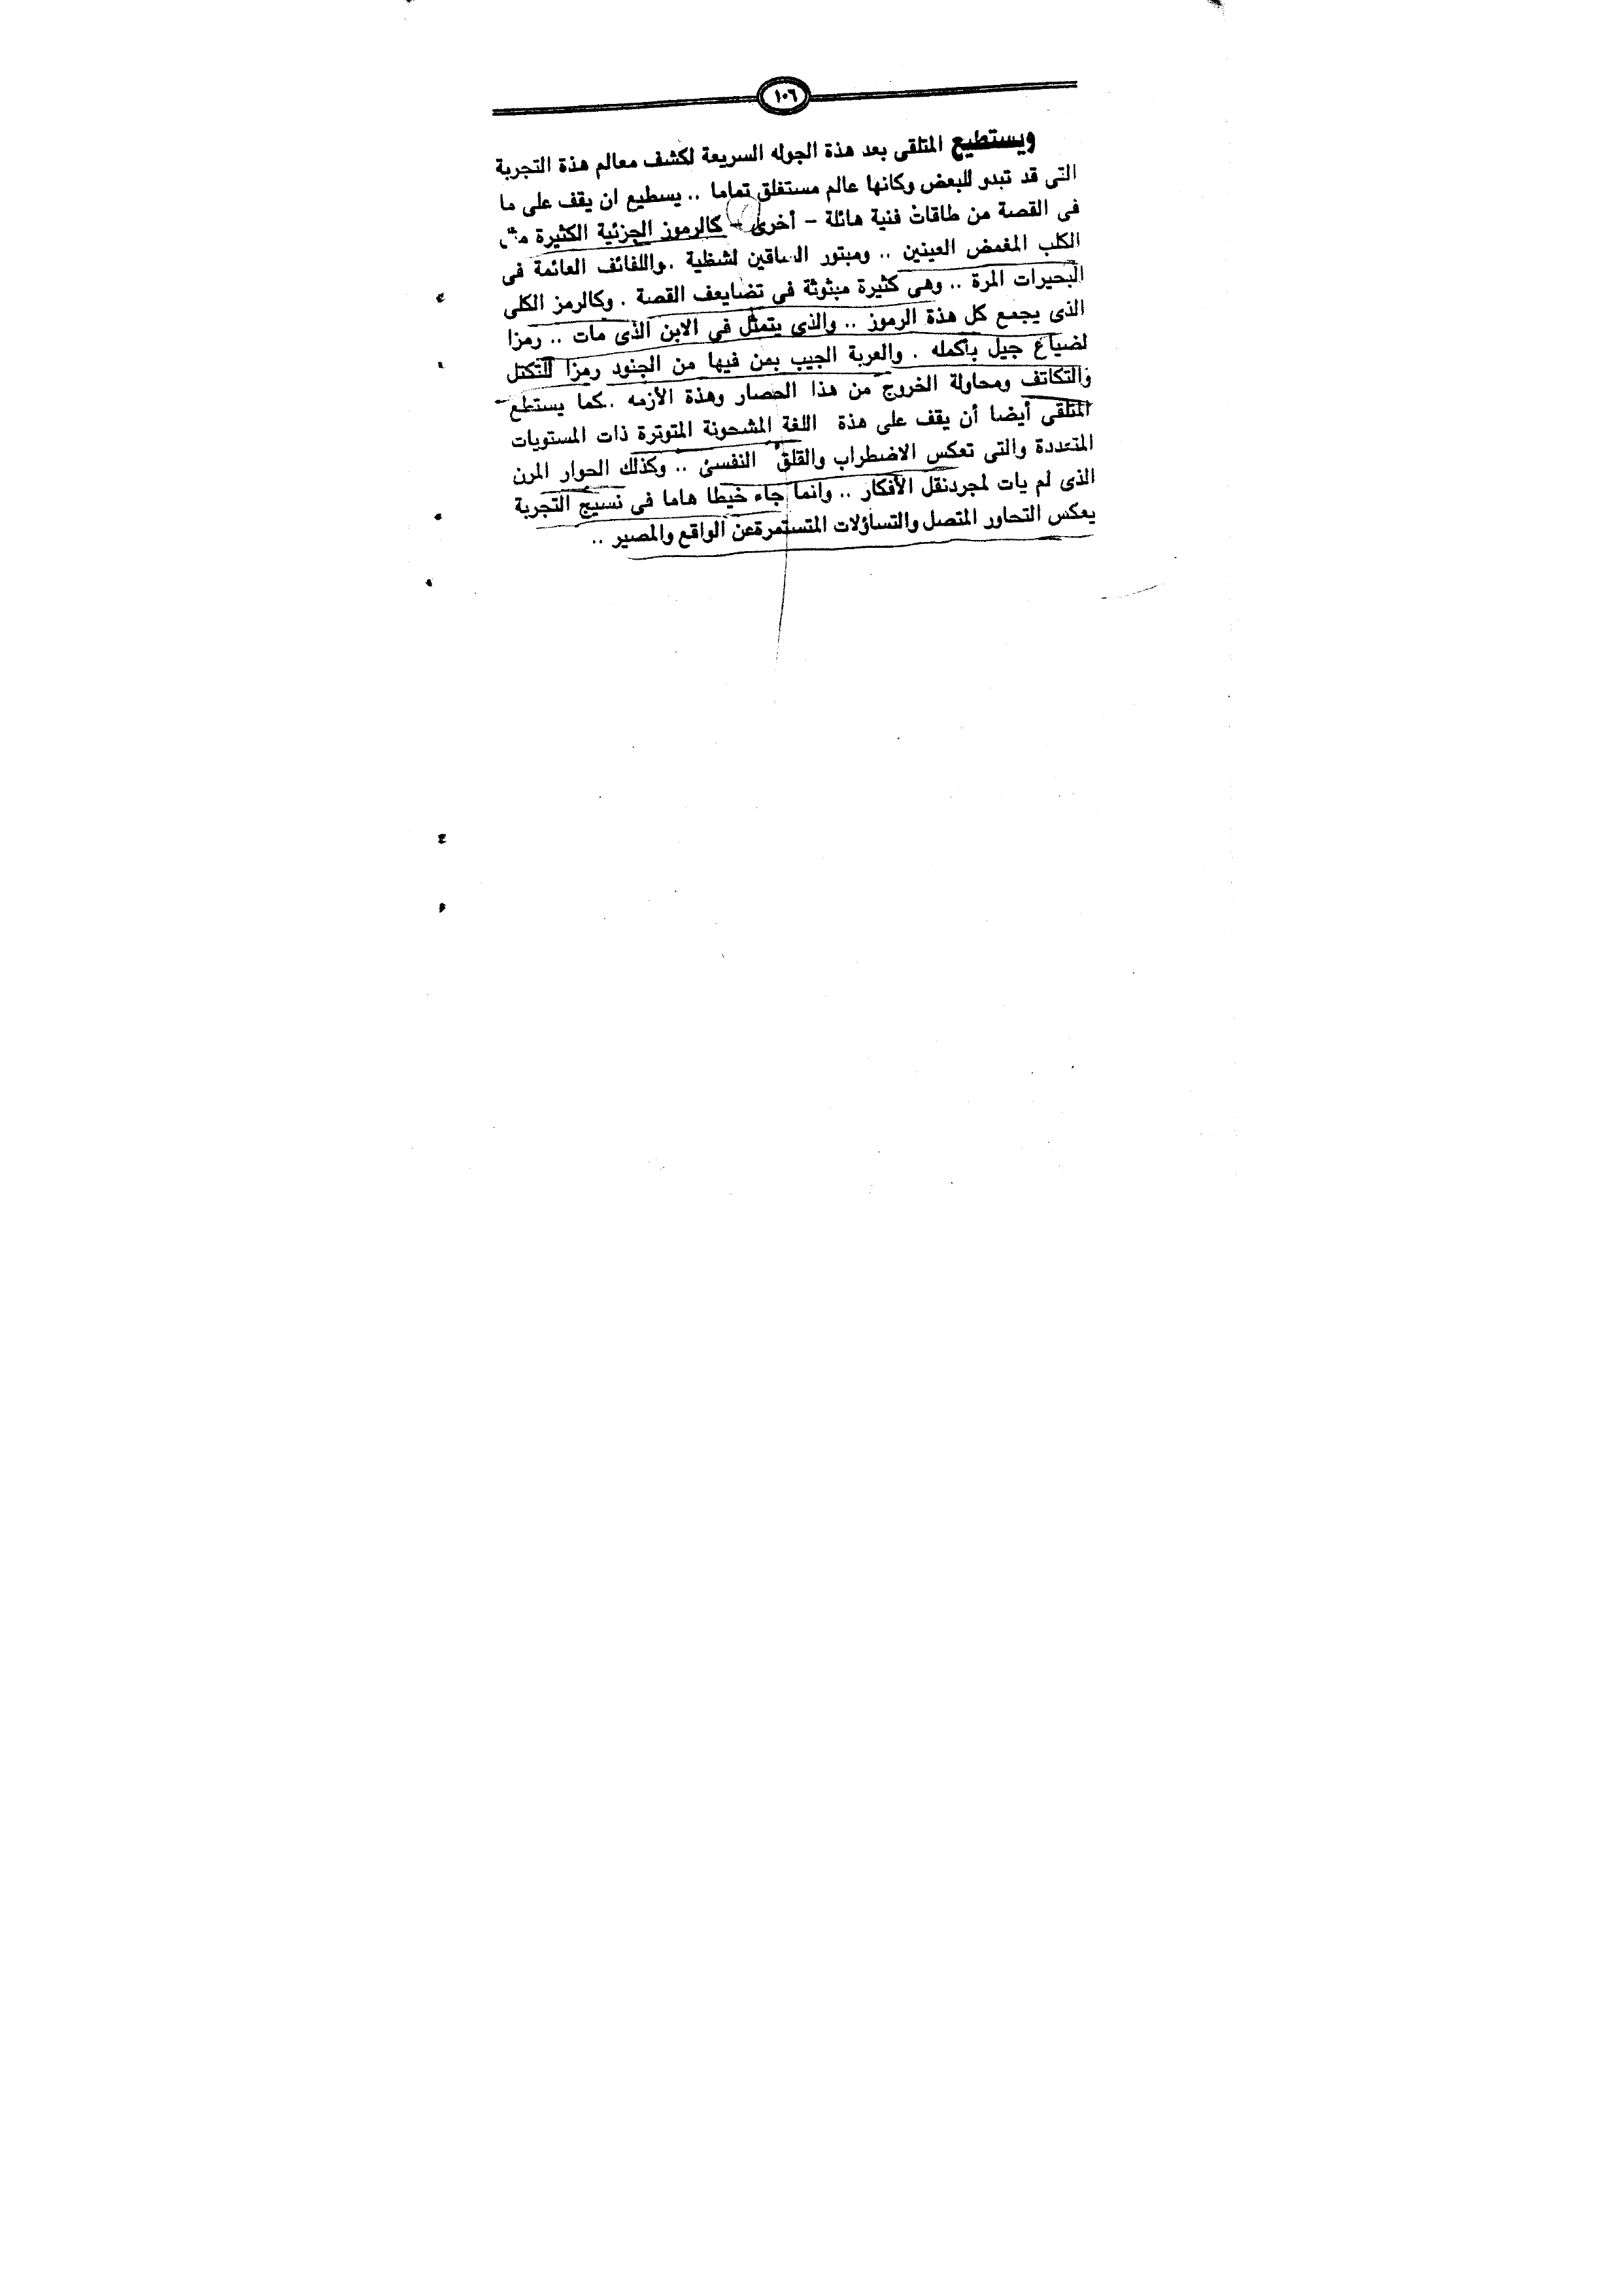 ١٠٦
ويستطيع المتلقى بعد هذة الجوله السريعة لكشف معالم هذة التجربة
التى قد تبدو للبعض وكانها عالم مستغلق تماما .. يسطيع ان يقف على ما
فى القصة من طاقات فنية هائلة - أخرى - كالرموز الجزئية الكثيرة
الكلب المغمض العينين .. ومبتور الساقين لشظية .. واللفائف العائمة فى
البحيرات المرة .. وهى كثيرة مبثوثة فى تضايعف القصة . وكالرمز الكلى
الذى يجمع كل هذة الرموز .. والذى يتمثل فى الابن الذى مات .. رمزا
لضياع جيل بأكمله . والعربة الجيب بمن فيها من الجنود رمزا للتكتل
والتكاتف ومحاولة الخروج من هذا الحصار وهذة الأزمه .. كما يستطع
المتلقى أيضا أن يقف على هذة اللغة المشحونة المتوترة ذات المستويات
المتعددة والتى تعكس الاضطراب والقلق النفسى .. وكذلك الحوار المرن
الذى لم يات لمجردنقل الأفكار .. وانما جاء خيطا هاما فى نسيج التجربة
يعكس التحاور المتصل والتساؤلات المتستمرةعن الواقع والمصير ..